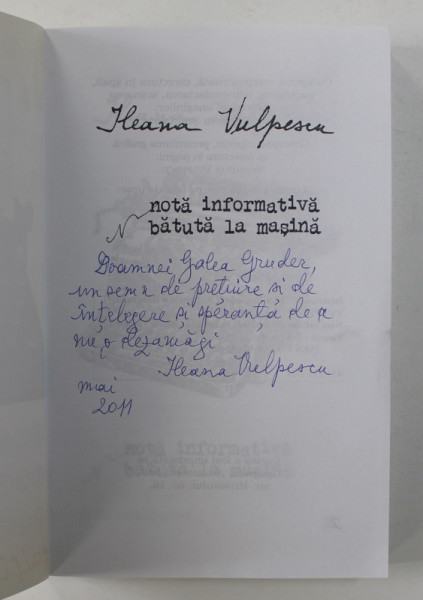 Ileana Vulpescu
notă informativă
bătută la mașină
Doamnei Galea Gruder,
un semn de prețuire si de
înțelegere și speranță de a
nu o dezamăgi
Ileana Vulpescu
mai
2011